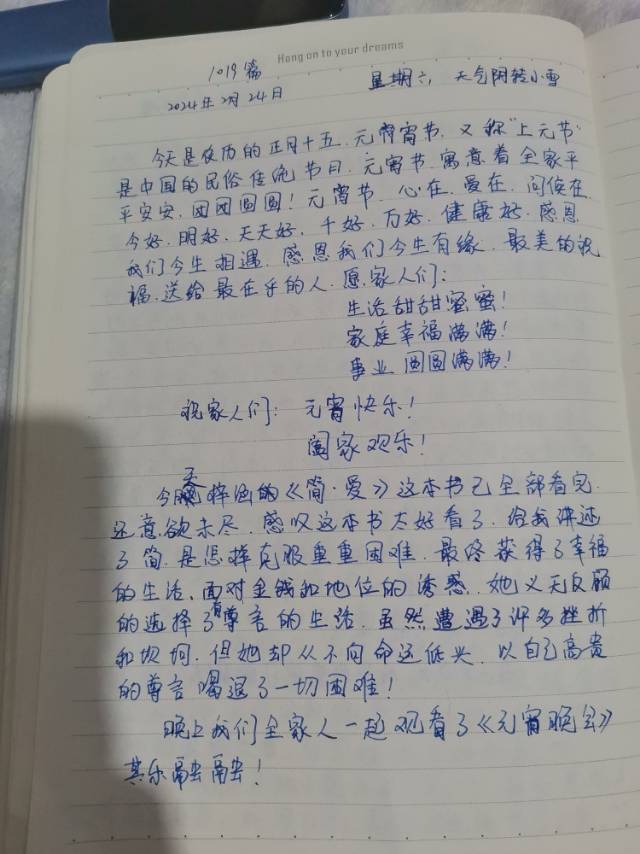 Hang on to your dreams
1019篇
2024年2月24日 星期六, 天气阴转小雪
今天是农历的正月十五.元宵节.又称"上元节"
是中国的民俗传统节日.元宵节.寓意着全家平
平安安,团团圆圆!元宵节.心在.爱在.问候在
今好.明好.天天好.千好.万好.健康好.感恩
我们今生相遇.感恩我们今生有缘.最美的祝
福.送给最在乎的人.愿家人们:
生活甜甜蜜蜜!
家庭幸福满满!
事业圆圆满满!
祝家人们:元宵快乐!
阖家欢乐!
今天梓涵的《简·爱》这本书已全部看完
还意欲未尽.感叹这本书太好看了.给我讲述
了简.是怎样克服重重困难.最终获得了幸福
的生活.面对金钱和地位的诱惑.她义无反顾
的选择了有尊言的生活.虽然遭遇了许多挫折
和坎坷.但她却从不向命运低头.以自己高贵
的尊言喝退了一切困难!
晚上我们全家人一起观看了《元宵晚会》
其乐融融!